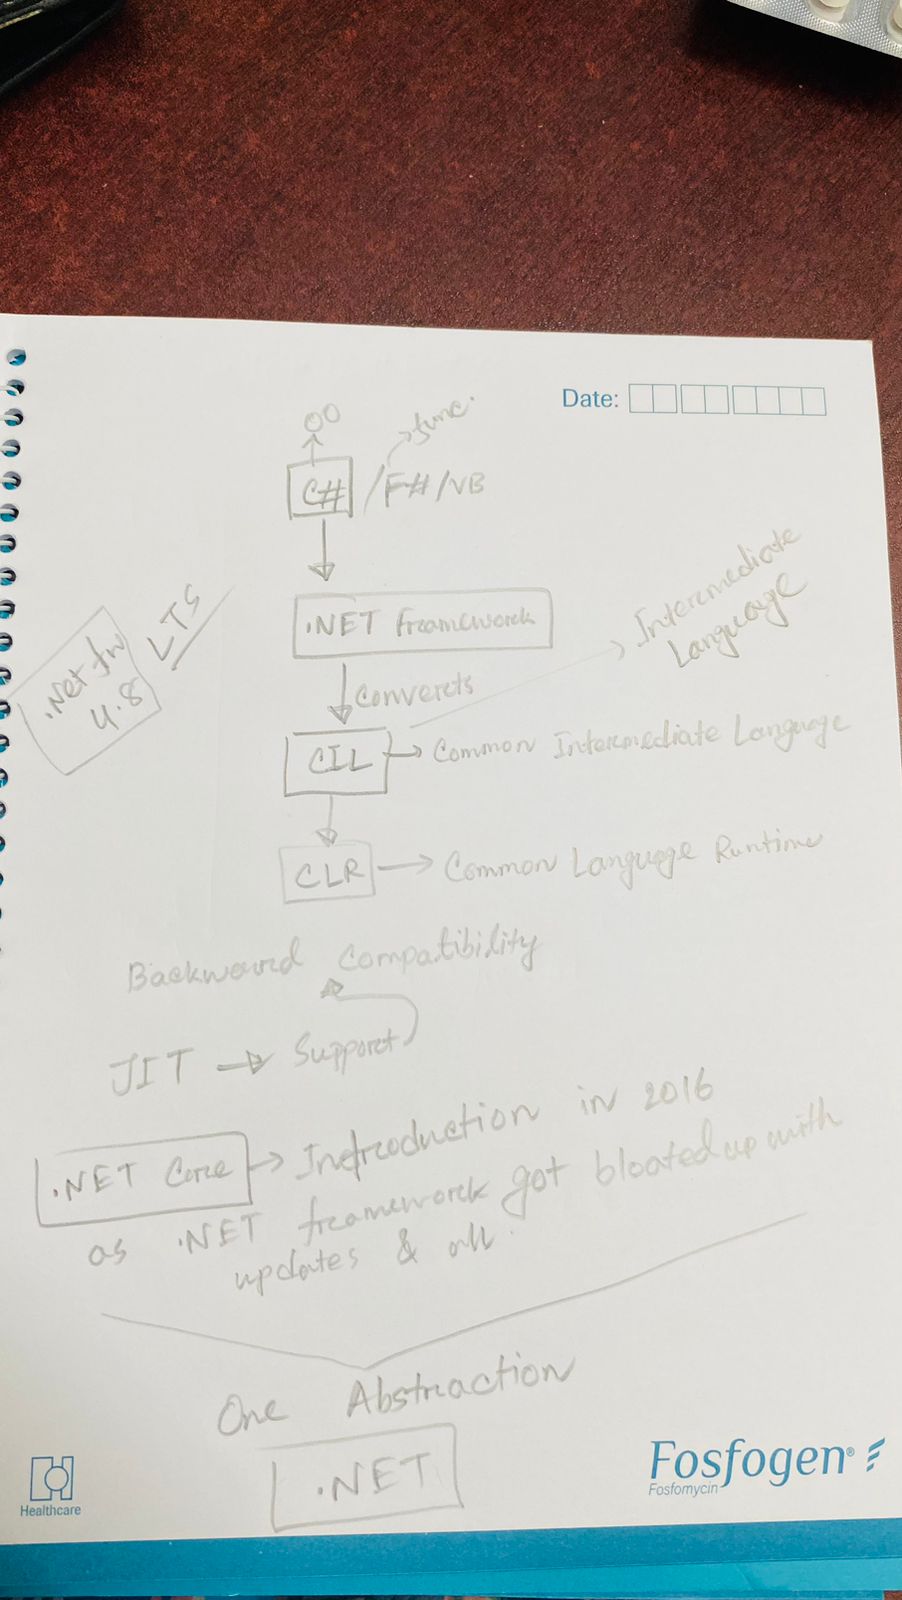 Date:
OO
func.
C# / F# / VB
.NET Framework
Intermediate
Language
.Net fw
4.8
LTS
Converts
CIL → Common Intermediate Language
CLR → Common Language Runtime
Backward Compatibility
JIT → Support
.NET Core → Introduction in 2016
as .NET framework got bloated up with
updates & all.
One Abstraction
.NET
Healthcare
Fosfogen®
Fosfomycin